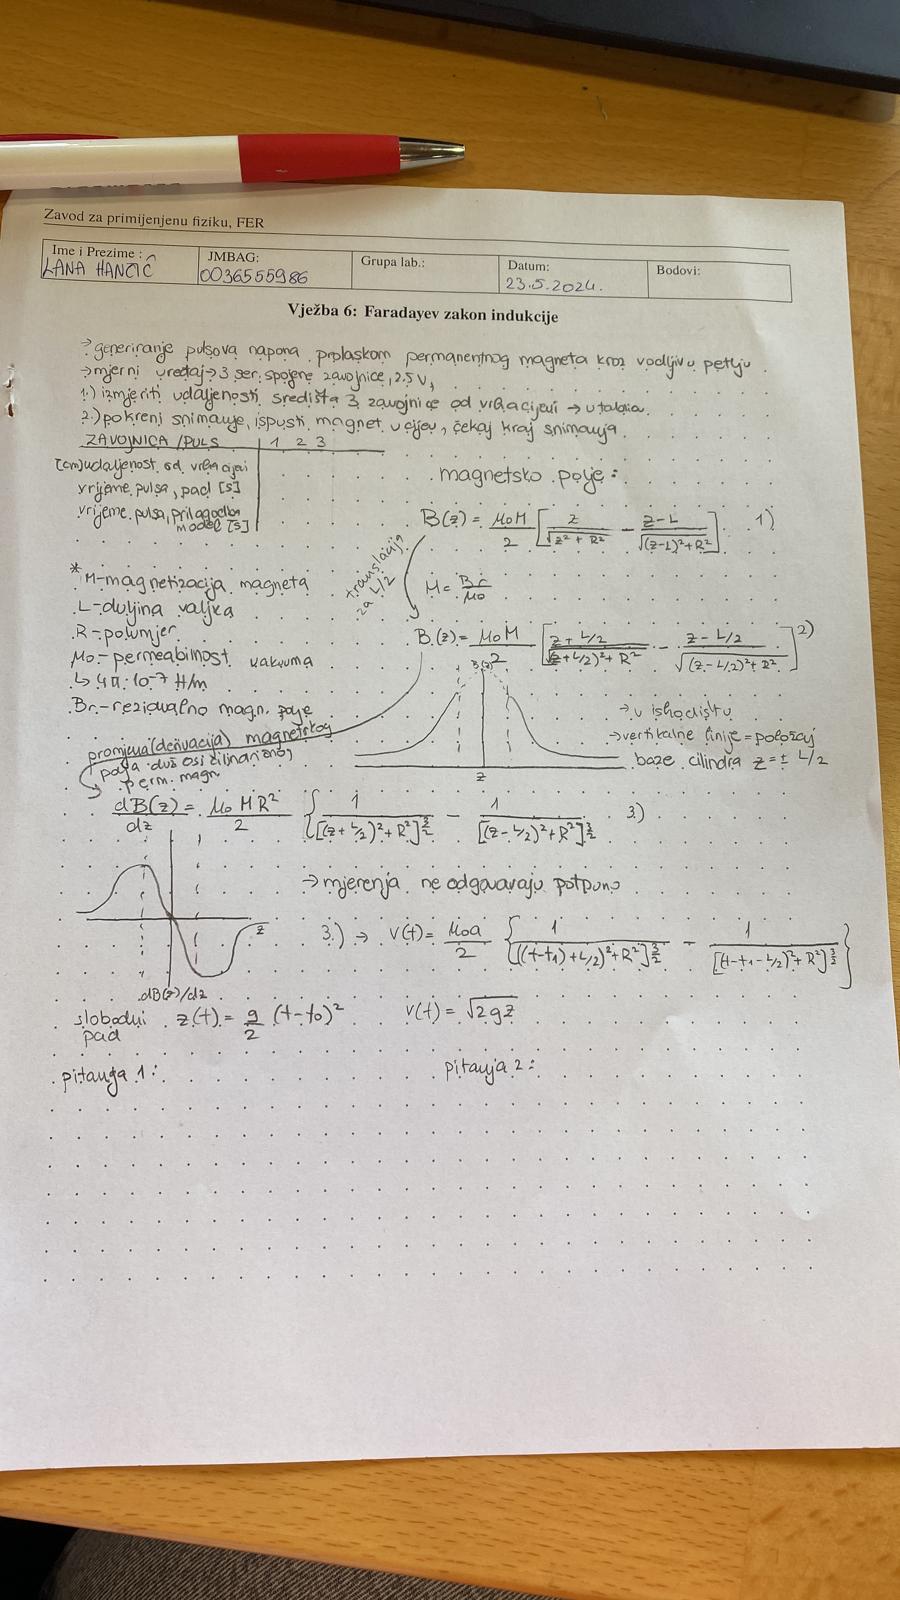 Zavod za primijenjenu fiziku, FER
Ime i Prezime : JMBAG: Grupa lab.: Datum: Bodovi:
LANA HANČIĆ 0036555986 23.5.2024.
Vježba 6: Faradayev zakon indukcije
→ generiranje pulsova napona prolaskom permanentnog magneta kroz vodljivu petlju
→ mjerni uređaj → 3 ser. spojene zavojnice, 2.5 V,
1.) izmjeriti udaljenosti središta 3 zavojnice od vrha cijevi → u tablia
2.) pokreni snimanje, ispusti magnet u cijev, čekaj kraj snimanja
ZAVOJNICA /PULS 1 2 3
[cm] udaljenost od vrha cijevi
vrijeme pulsa, pad [s]
vrijeme pulsa, prilagodba
model [s]
magnetsko polje :
B(z) = μ0M/2 [z/√(z²+R²) - (z-L)/√((z-L)²+R²)] 1)
translacija
za L/2
M = Br/μ0
* M-magnetizacija magneta
L-duljina valjka
R-polumjer
μ0-permeabilnost vakuuma
↳ 4π·10⁻⁷ H/m
Br-rezidualno magn. polje
B(z) = μ0M/2 [(z+L/2)/√((z+L/2)²+R²) - (z-L/2)/√((z-L/2)²+R²)] 2)
B(z)
z
→ u ishodištu
→ vertikalne linije = položaj
baze cilindra z = ± L/2
promjena (derivacija) magnetskog
polja duž osi
perm. magn.
dB(z)/dz = μ0MR²/2 {1/[(z+L/2)²+R²]^3/2 - 1/[(z-L/2)²+R²]^3/2 3.)
z
dB(z)/dz
→ mjerenja ne odgovaraju potpuno
3.) → V(t) = μ0a/2 {1/[((t-t1)+L/2)²+R²]^3/2 - 1/[(t-t1-L/2)²+R²]^3/2}
slobodni
pad
z(t) = g/2 (t-t0)² v(t) = √2gz
pitanja 1: pitanja 2: